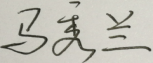 马秀兰